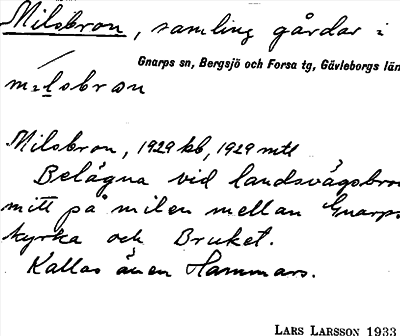 Milsbron, samling gårdar i
Gnarps sn, Bergsjö och Forsa tg, Gävleborgs län
mìlsbron
Milsbron, 1929 kb, 1929 mtl
Belägna vid landsvägsbron
mitt på milen mellan Gnarps
kyrka och Bruket.
Kallas även Hammars.
LARS LARSSON 1933